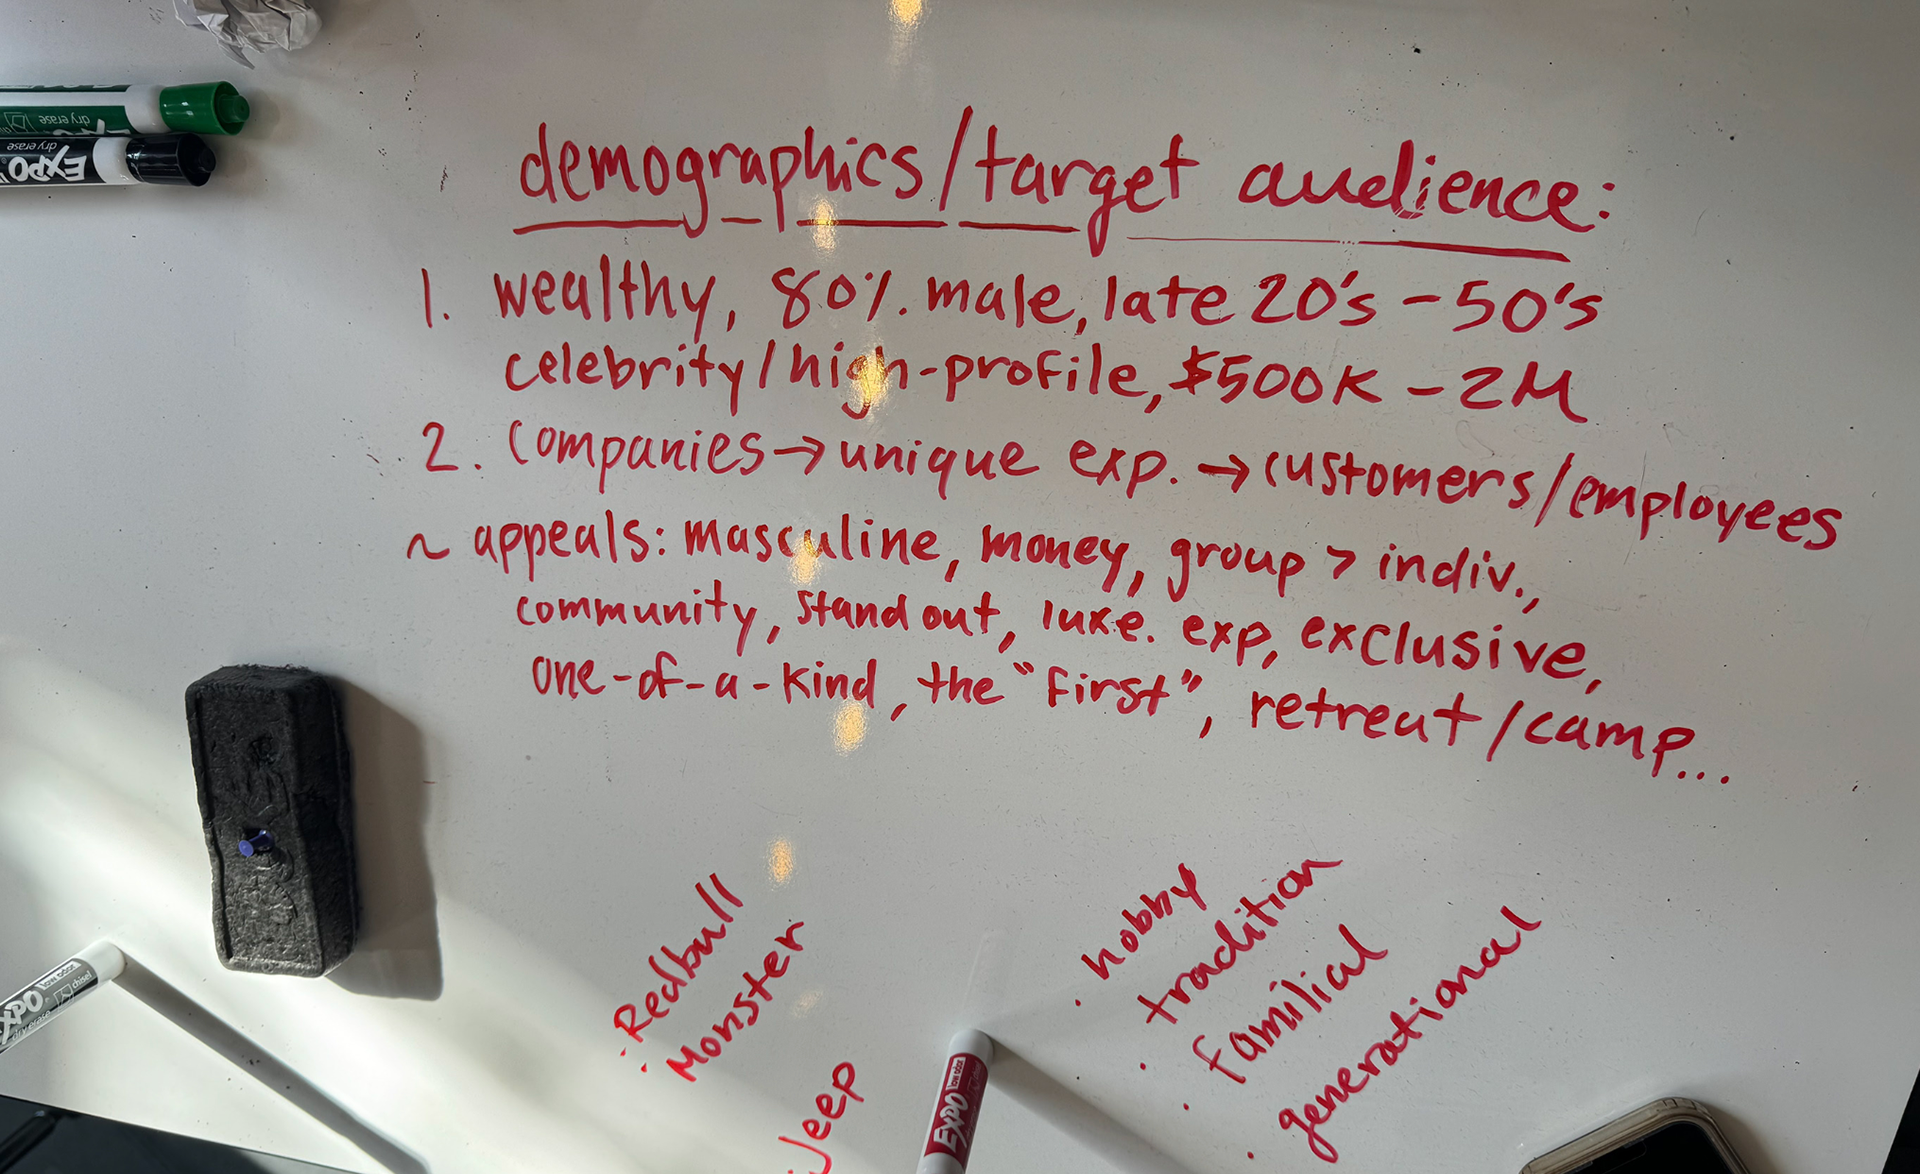 demographics/target audience:
1. wealthy, 80% male, late 20's - 50's
celebrity/high-profile, $500K - 2M
2. companies → unique exp. → customers/employees
~ appeals: masculine, money, group > indiv.,
community, stand out, luxe. exp, exclusive,
one-of-a-kind, the "first", retreat/camp...
· Redbull
· Monster
Jeep
· hobby
· tradition
· familial
· generational
dry erase
EXPO
dry erase
EXPO
LOW ODOR
chisel
dry erase
EXPO
LOW ODOR